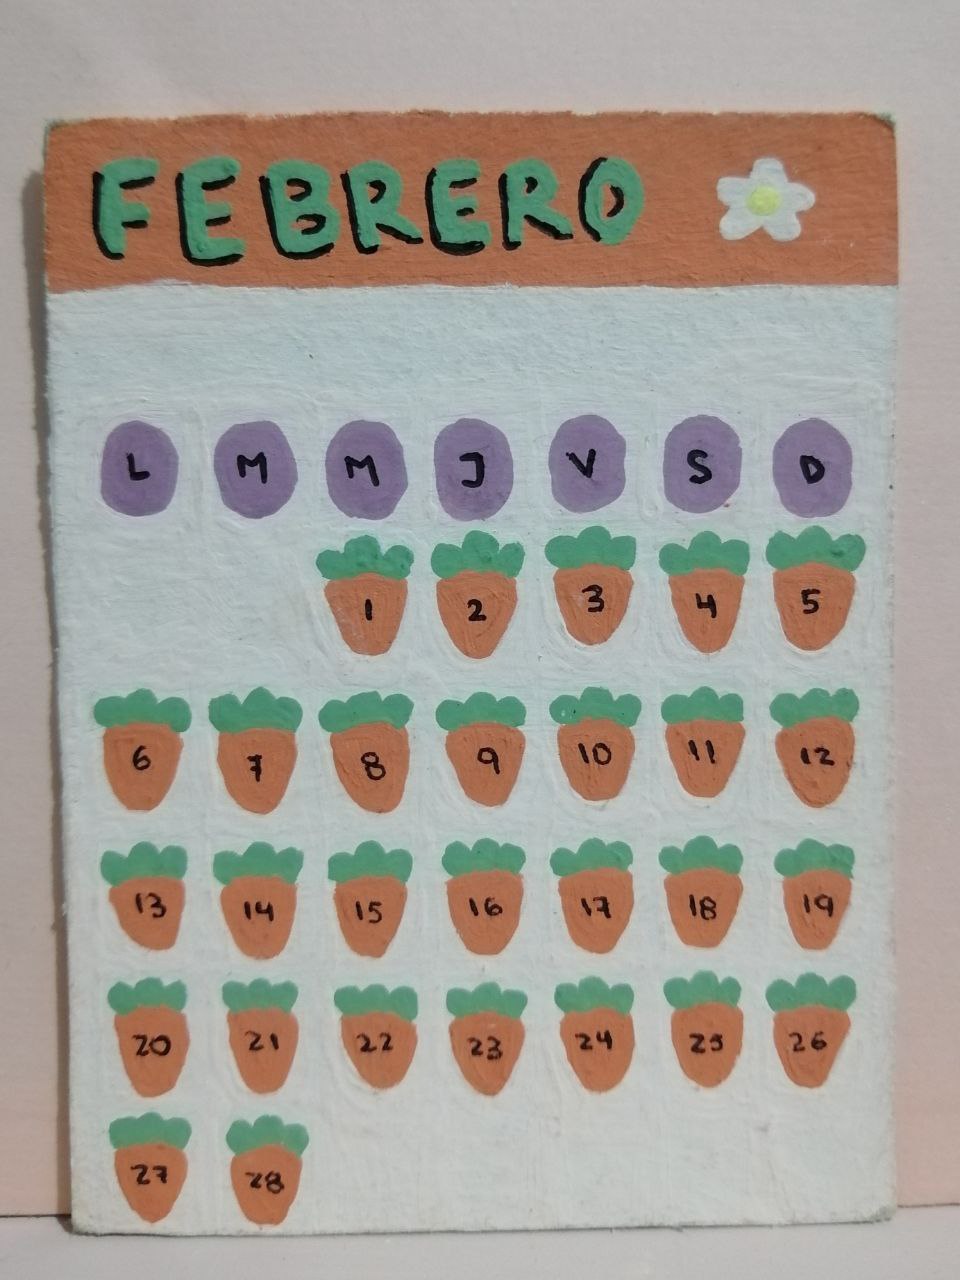 FEBRERO
L M M J V S D
1 2 3 4 5
6 7 8 9 10 11 12
13 14 15 16 17 18 19
20 21 22 23 24 25 26
27 28